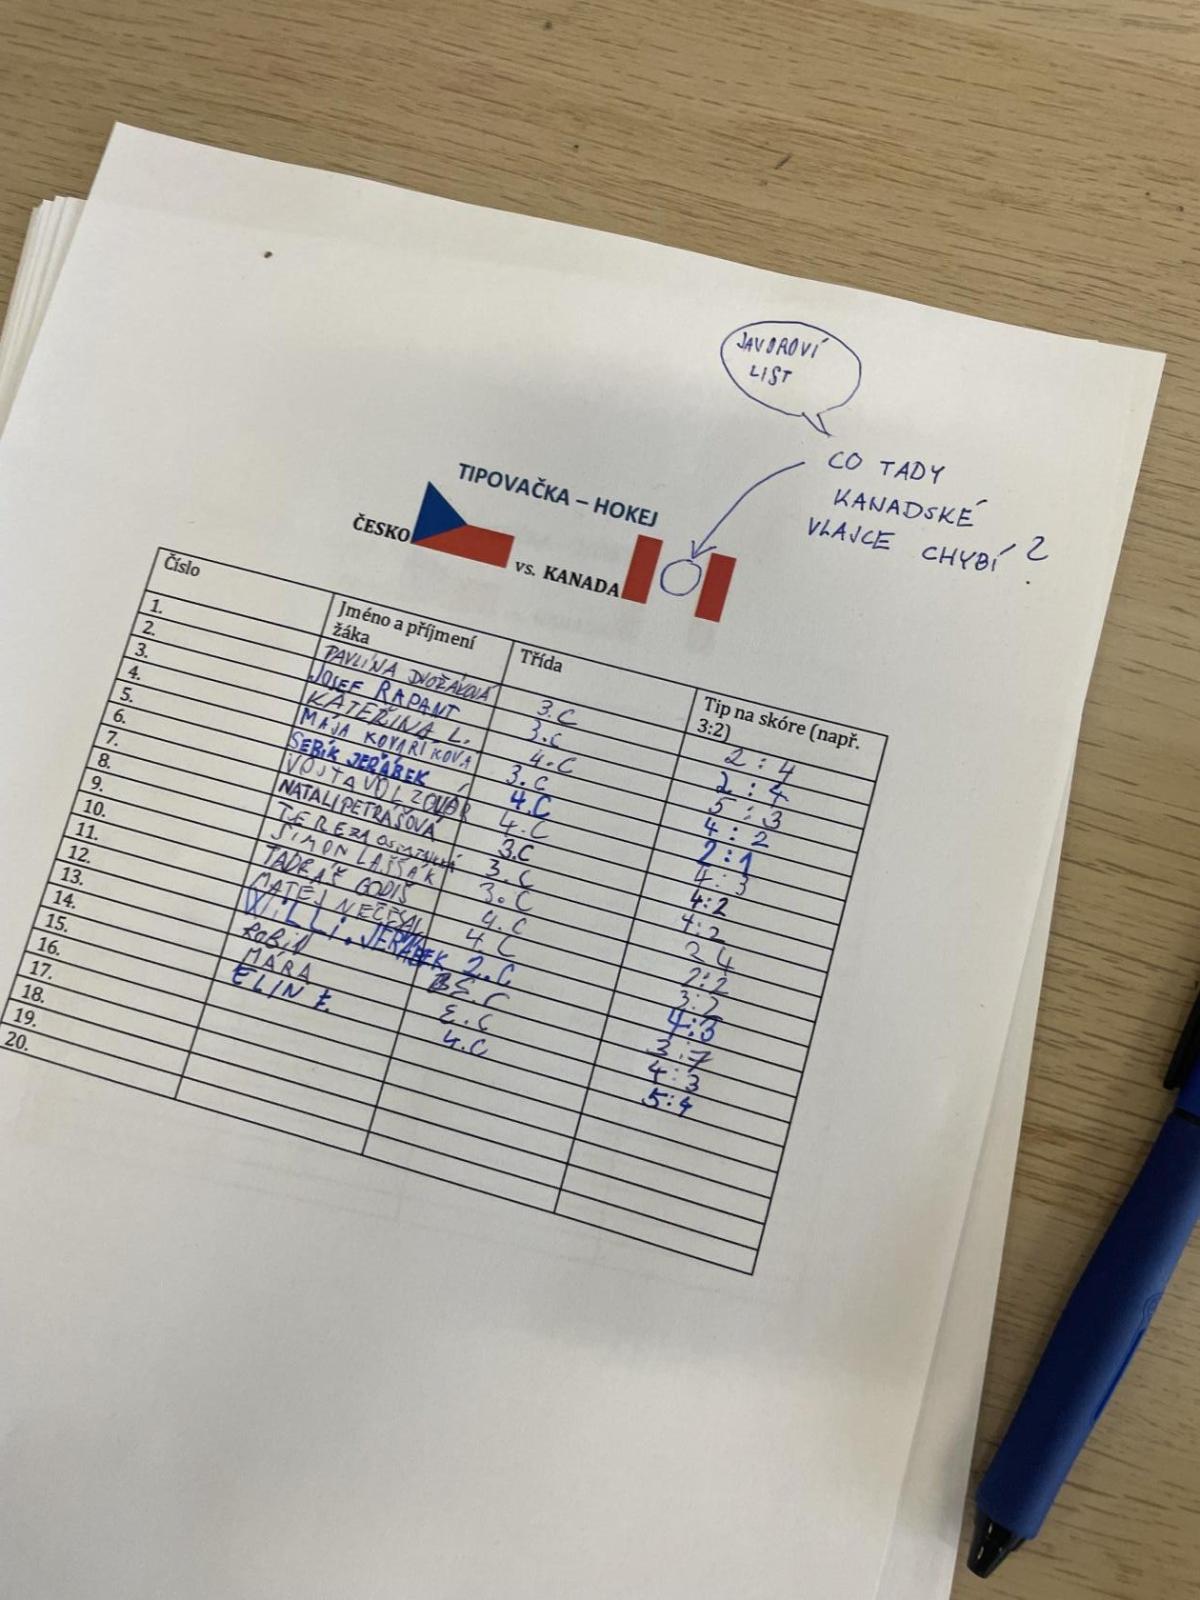 JAVOROVÍ
LIST
CO TADY
KANADSKÉ
VLAJCE CHYBÍ?
TIPOVAČKA – HOKEJ
ČESKO vs. KANADA
Číslo Jméno a příjmení žáka Třída Tip na skóre (např. 3:2)
1. PAVLÍNA DVOŘÁKOVÁ 3.C 2:4
2. JOSEF RAPANT 3.C 2:4
3. KATEŘINA L. 4.C 5:3
4. MÁJA KOVAŘÍKOVÁ 3.C 4:2
5. SEBÍK JEŘÁBEK 4.C 2:1
6. VOJTA 4.C 4:3
7. NATALI PETRÁŠOVÁ 3.C 4:2
8. TEREZA 3.C 4:2
9. ŠIMON LAŠŠÁK 3.C 2 4
10. GODIŠ 4.C 2:2
11. MATĚJ NEČESAL 4.C 3:2
12. WiLLi. JEŘÁBEK 2.C 4:3
13. ROBIN 3:7
14. MÁRA E.C 4:3
15. ELIN 4.C 5:4
16.
17.
18.
19.
20.